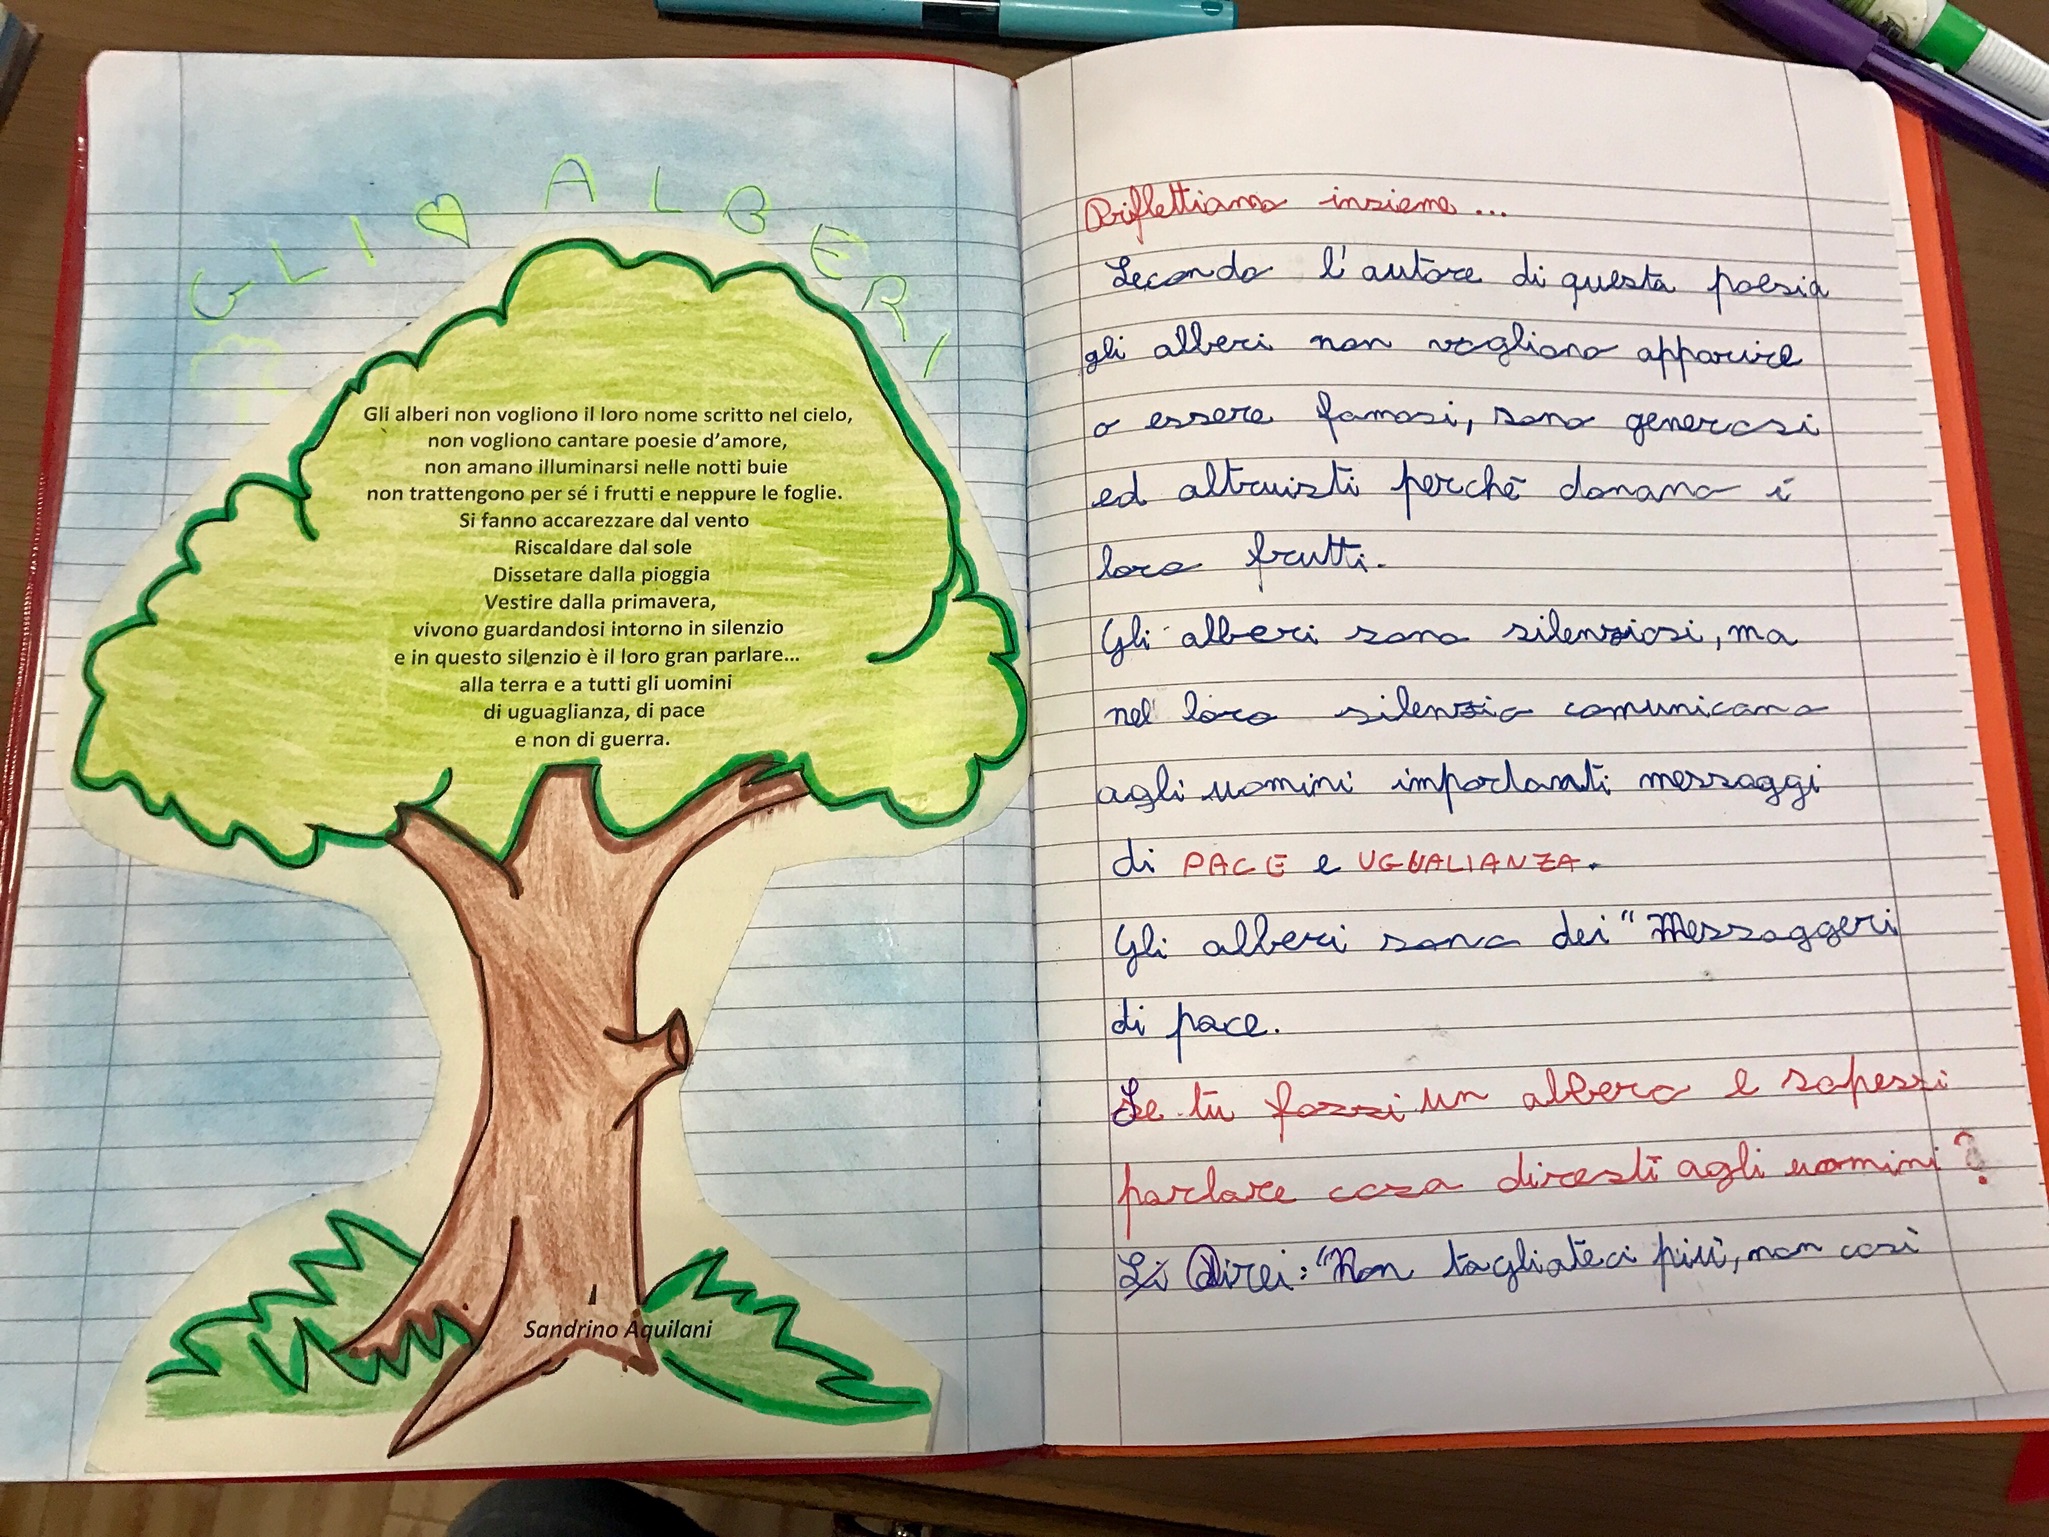 GLI ALBERI
Gli alberi non vogliono il loro nome scritto nel cielo,
non vogliono cantare poesie d'amore,
non amano illuminarsi nelle notti buie
non trattengono per sé i frutti e neppure le foglie.
Si fanno accarezzare dal vento
Riscaldare dal sole
Dissetare dalla pioggia
Vestire dalla primavera,
vivono guardandosi intorno in silenzio
e in questo silenzio è il loro gran parlare...
alla terra e a tutti gli uomini
di uguaglianza, di pace
e non di guerra.
Sandrino Aquilani
Riflettiamo insieme...
Secondo l'autore di questa poesia
gli alberi non vogliono apparire
o essere famosi, sono generosi
ed altruisti perchè donano i
loro frutti.
Gli alberi sono silenziosi, ma
nel loro silenzio comunicano
agli uomini importanti messaggi
di PACE e UGUALIANZA.
Gli alberi sono dei "Messaggeri
di pace.
Se tu fossi un albero e sapessi
parlare cosa diresti agli uomini?
Li Direi: "Non tagliateci più, non così